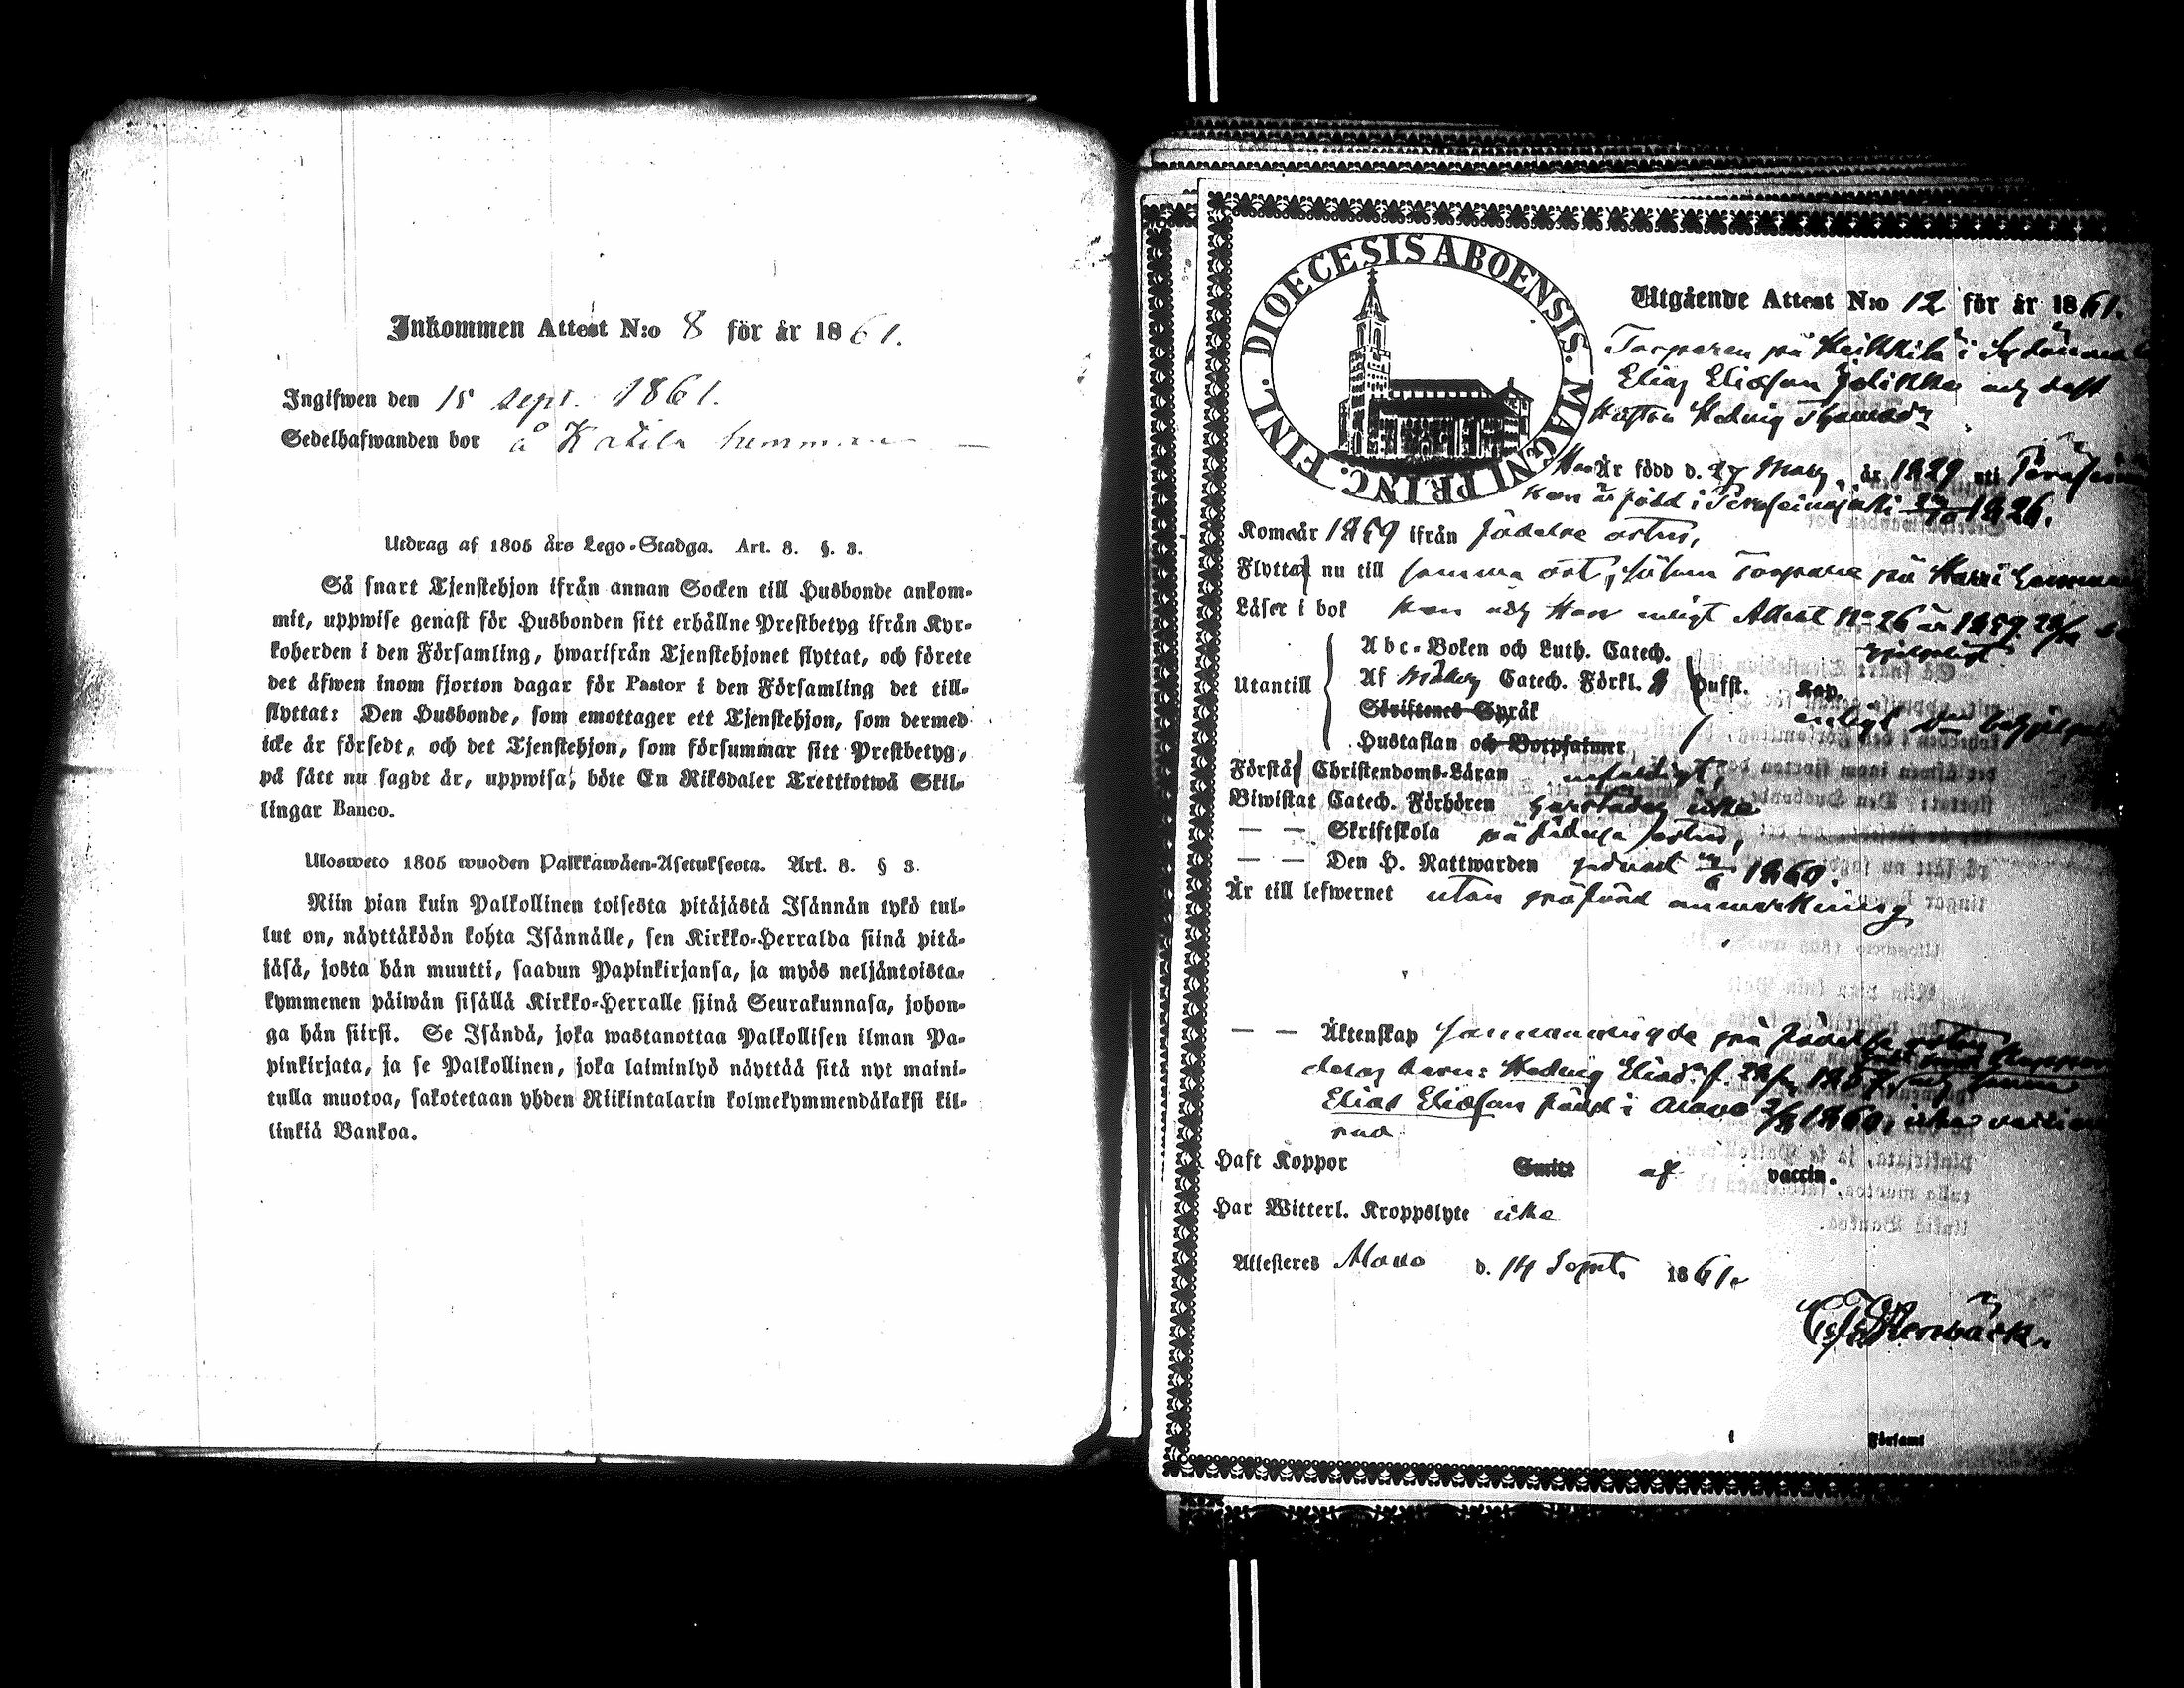 Inkommen Attest N:o 8 för år 1861.
Ingifwen den 15 sept. 1861.
Sedelhafwanden bor å Katila hemman
Utdrag af 1805 års Lego-Stadga. Art. 8. §. 3.
Så snart Tjenstehjon ifrån annan Socken till Husbonde ankom-
mit, uppwise genast för Husbonden sitt erhållne Prestbetyg ifrån Kyr-
koherden i den Församling, hwarifrån Tjenstehjonet flyttat, och förete
det äfwen inom fjorton dagar för Pastor i den Församling det till-
flyttat: Den Husbonde, som emottager ett Tjenstehjon, som dermed
icke är försedt, och det Tjenstehjon, som försummar sitt Prestbetyg,
på sätt nu sagdt är, uppwisa, böte En Riksdaler Trettiotwå Skil-
lingar Banco.
Ulosweto 1805 wuoden Palkkawäen-Asetuksesta. Art. 8. § 3.
Niin pian kuin Palkollinen toisesta pitäjästä Isännän tykö tul-
lut on, näyttäköön kohta Isännälle, sen Kirkko-Herralda siinä pitä-
jäsä, josta hän muutti, saadun Papinkirjansa, ja myös neljäntoista-
kymmenen päiwän sisällä Kirkko-Herralle siinä Seurakunnasa, johon-
ga hän siirsi. Se Isändä, joka wastanottaa Palkollisen ilman Pa-
pinkirjata, ja se Palkollinen, joka laiminlyö näyttää sitä nyt maini-
tulla muotoa, sakotetaan yhden Riikintalarin kolmekymmendäkaksi kil-
linkiä Bankoa.
DIOECESIS ABOENSIS. MAGNI PRINC. FINL.
Utgående Attest N:o 12 för år 1861.
Torparen på Heikkilä i
Elias Eliasson och dess
Hustru Hedvig
Är född d. 27 år 1829 uti
hon är född i 1826.
Kom år 1859 ifrån födelse orten,
Flyttar nu till samma ort, såsom Torpare på Harri
Läser i bok hon och Han enligt Attest No 26 år 1859
Abc-Boken och Luth. Catech.
Utantill Af Catech. Förkl. Hufst. Kap.
Skriftenes Språk enligt
Hustaflan och Botpsalmer
Förstå Christendoms-Läran enfaldigt,
Biwistat Catech. Förhören icke
— — Skriftskola på födelse orten,
— — Den H. Nattwarden 1860.
Är till lefwernet utan anmärkning
— — Äktenskap sammanvigde på födelse orten
deras barn: Hedvig Eliasd. f. 1857,
Elias Eliasson född i Alavo 1860, icke
Haft Koppor Smitt af vaccin.
Har Witterl. Kroppslyte icke
Attesteras Alavo d. 14 Sept. 1861.
Församl